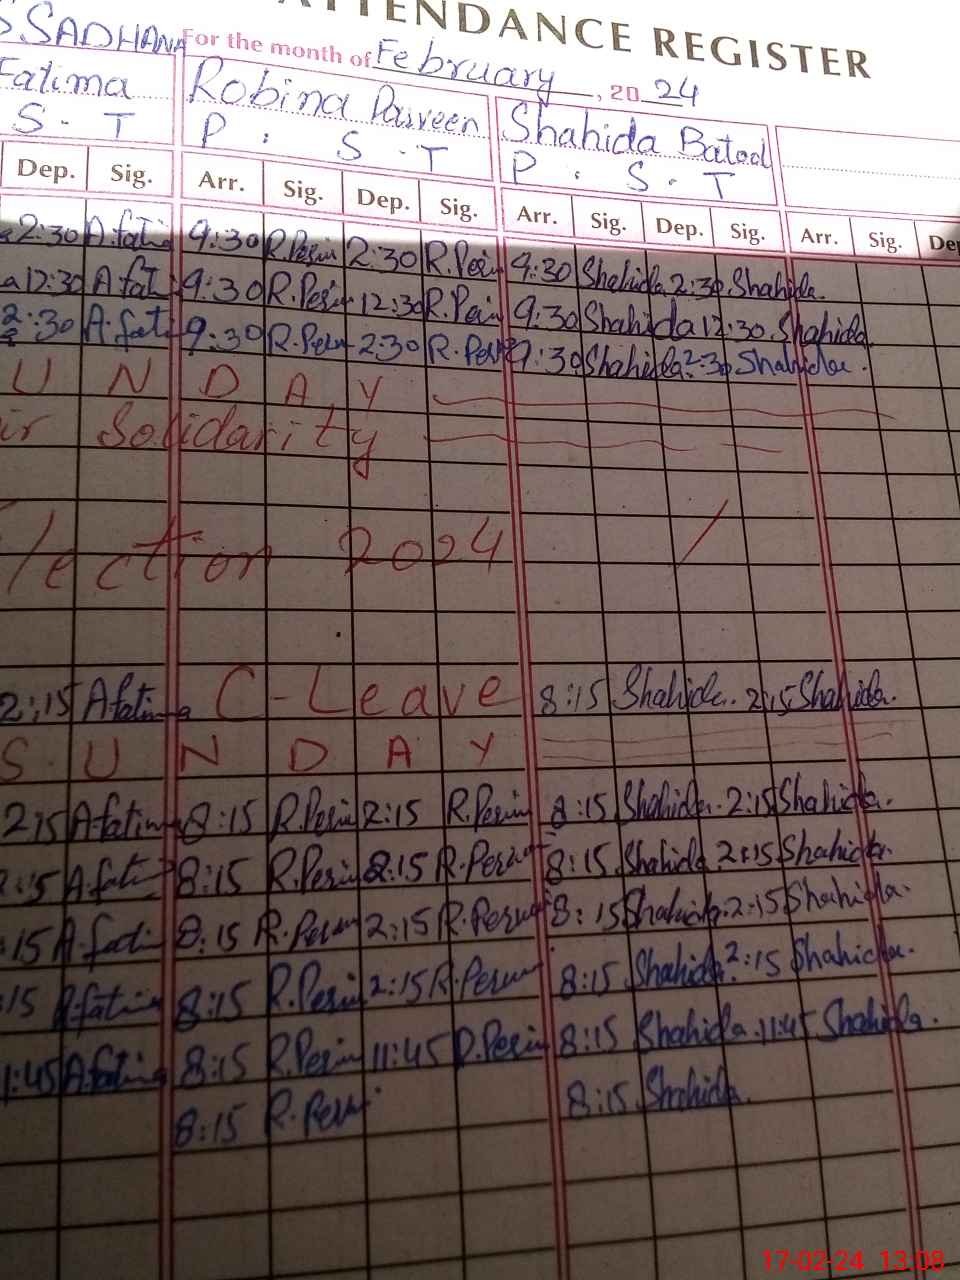 ATTENDANCE REGISTER
SADHANA For the month of February, 2024
Fatima Robina Parveen Shahida Batool
S. T P : S. T P : S. T
Dep. Sig. Arr. Sig. Dep. Sig. Arr. Sig. Dep. Sig. Arr. Sig. De
2:30 A.fati 9:30 R.Perin 2:30 R.Perin 9:30 Shahida 2:30 Shahida.
12:30 A.fati 9:30 R.Perin 12:30 R.Perin 9:30 Shahida 12:30 Shahida
2:30 A.fati 9:30 R.Perin 2:30 R.Perin 9:30 Shahida 2:30 Shahida.
U N D A Y
ir Solidarity
lection 2024
2:15 A.fatima C-Leave 8:15 Shahida. 2:15 Shahida.
S U N D A Y
2:15 A.fatima 8:15 R.Perin 2:15 R.Perin 8:15 Shahida. 2:15 Shahida.
2:15 A.fati 8:15 R.Perin 2:15 R.Perin 8:15 Shahida 2:15 Shahida.
:15 A.fati 8:15 R.Perin 2:15 R.Perin 8:15 Shahida. 2:15 Shahida.
:15 A.fatim 8:15 R.Perin 2:15 R.Perin 8:15 Shahida 2:15 Shahida.
1:45 A.fatima 8:15 R.Perin 11:45 R.Perin 8:15 Shahida. 11:45 Shahida.
8:15 R.Perin 8:15 Shahida.
17-02-24 13:08